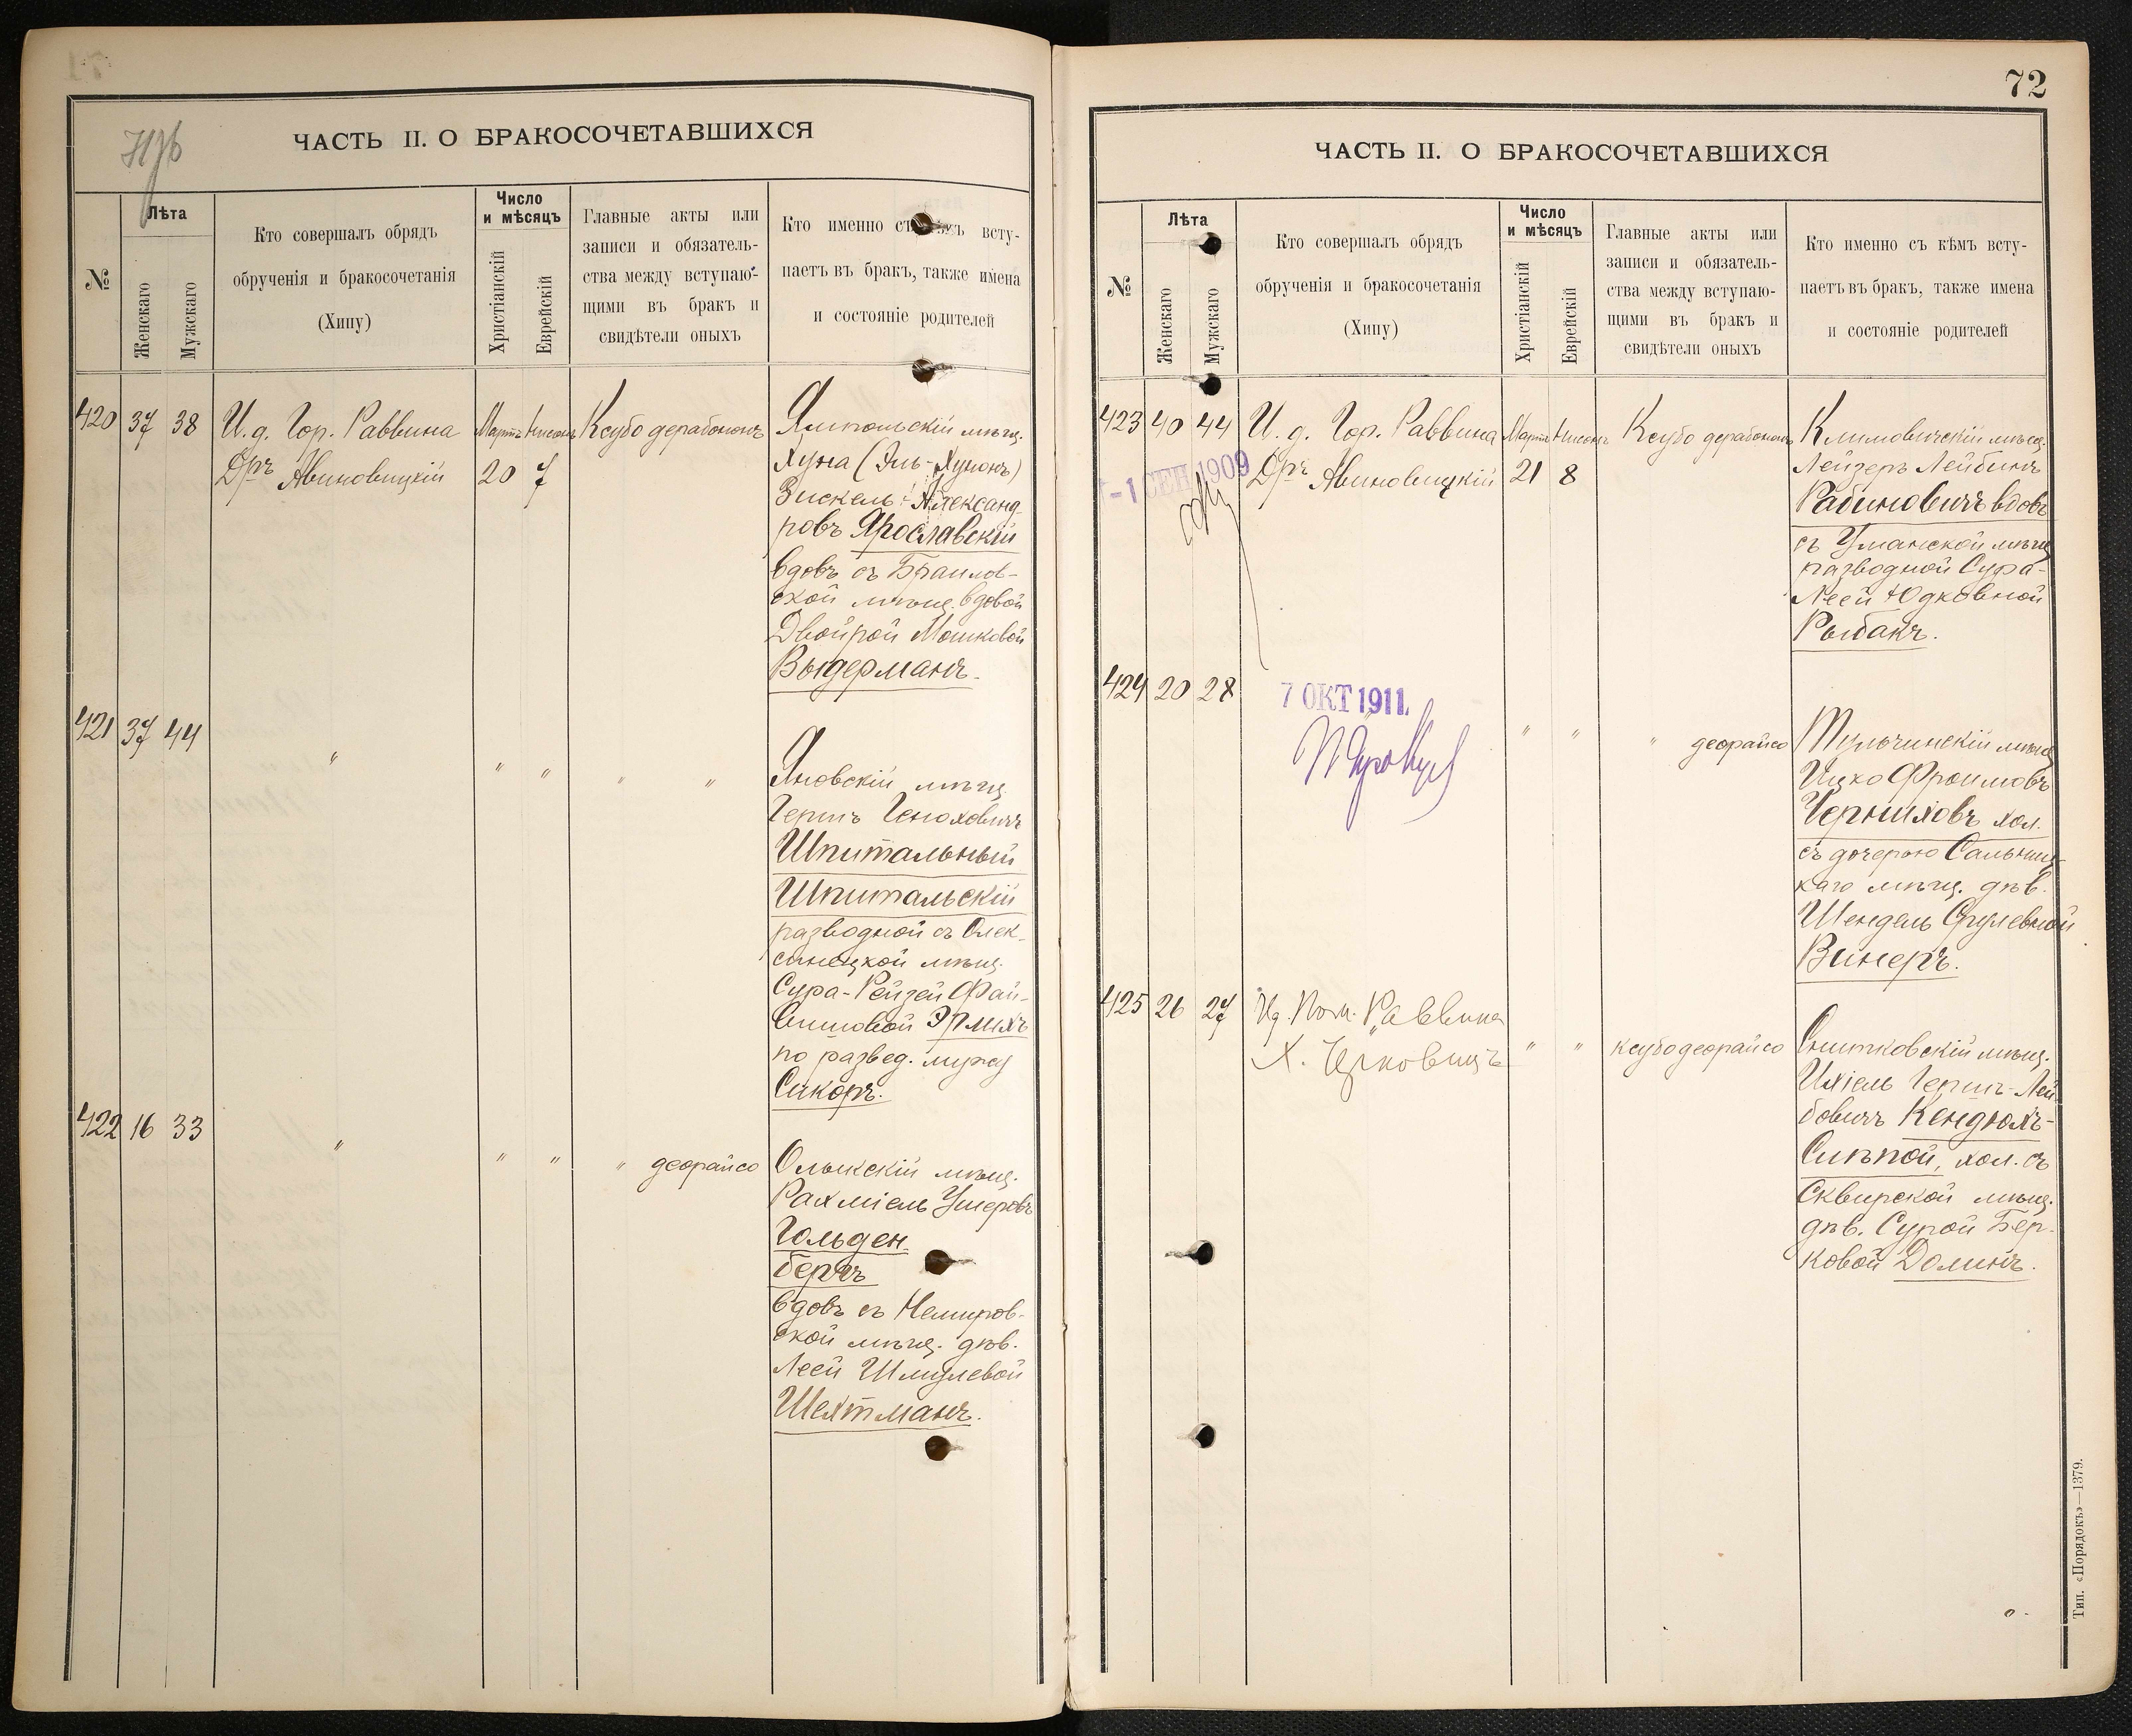 ЧАСТЬ II. О БРАКОСОЧЕТАВШИХСЯ
№
Лѣта
Женскаго
Мужскаго
Кто совершалъ обрядъ
обрученія и бракосочетанія
(Хипу)
Число
и мѣсяцъ
Христіанскій
Еврейскій
Главные акты или
записи и обязатель-
ства между вступаю-
щими въ бракъ и
свидѣтели оныхъ
Кто именно съ всту-
паетъ въ бракъ, также имена
и состояніе родителей
420 37 38 И. д. Гор. Раввина Мартъ Нисонъ Ксубо дерабононъ
Дръ Авиновицкій 20 7
Ямпольскій мѣщ.
Хуна (Эль-Хунонъ)
Зискель Александ-
ровъ Ярославскій
вдовъ съ Браилов-
ской мѣщ. вдовой
Двойрой Мошковой
Выдерманъ.
421 37 44 " " " " "
Яновскій мѣщ.
Гершъ Геноховичъ
Шпитальный
Шпитальскій
разводной съ Олек-
синецкой мѣщ.
Сура-Рейзей Фай-
вишовой Эрлихъ
по развед. мужу
Сикоръ.
422 16 33 " " " " деорайсо
Олыкскій мѣщ.
Рахміель Ушеровъ
Гольден-
бергъ
вдовъ съ Немиров-
ской мѣщ. дѣв.
Леей Шмулевой
Шехтманъ.
72
ЧАСТЬ II. О БРАКОСОЧЕТАВШИХСЯ
№
Лѣта
Женскаго
Мужскаго
Кто совершалъ обрядъ
обрученія и бракосочетанія
(Хипу)
Число
и мѣсяцъ
Христіанскій
Еврейскій
Главные акты или
записи и обязатель-
ства между вступаю-
щими въ бракъ и
свидѣтели оныхъ
Кто именно съ кѣмъ всту-
паетъ въ бракъ, также имена
и состояніе родителей
423 40 44 И. д. Гор. Раввина Мартъ Нисонъ Ксубо дерабононъ
-1 СЕН 1909
Дръ Авиновицкій 21 8
Климовичскій мѣщ.
Лейзеръ Лейбинъ
Рабиновичъ вдовъ
съ Уманской мѣщ.
разводной Сура-
Леей Юдковной
Рыбакъ.
424 20 28
7 ОКТ 1911.
" " " деорайсо
Тульчинскій мѣщ.
Ицко Фроимовъ
Черниховъ хол.
съ дочерью Сальниц-
каго мѣщ. дѣв.
Шендель Срулевной
Винеръ.
425 26 27 И д. Пом. Раввина
" " ксубо деорайсо
Снитковскій мѣщ.
Ихіель Гершъ-Лей-
бовичъ Кендюхъ-
Слѣпой, хол. съ
Сквирской мѣщ.
дѣв. Сурой Бер-
ковой Долинъ.
Тип. «Порядокъ»—1379.